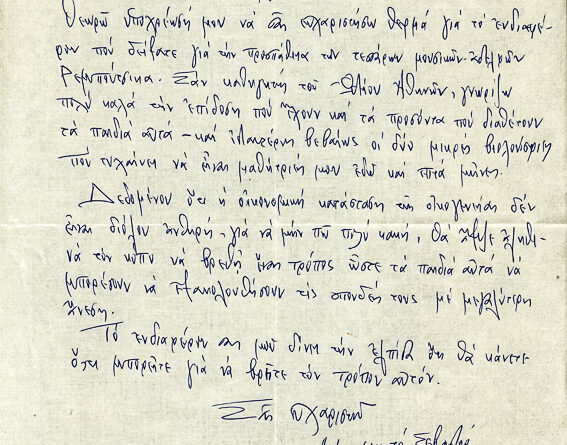 Θεωρῶ ὑποχρέωσή μου νὰ σᾶς εὐχαριστήσω θερμὰ γιὰ τὸ ἐνδιαφέ-
ρον ποὺ δείξατε γιὰ τὴν προσπάθεια τῶν τεσσάρων μουσικῶν ἀδελφῶν
Ρεμπούτσικα. Σὰν καθηγητὴ τοῦ Ὠδείου Ἀθηνῶν, γνωρίζω
πολὺ καλὰ τὴν ἐπίδοση ποὺ ἔχουν καὶ τὰ προσόντα ποὺ διαθέτουν
τὰ παιδιὰ αὐτὰ – καὶ βεβαίως οἱ δύο μικρὲς βιολονίστριες
ποὺ τυχαίνει νὰ εἶναι μαθήτριές μου ἐδῶ καὶ μῆνες.
Δεδομένου ὅτι ἡ οἰκονομικὴ κατάσταση τῆς οἰκογενείας δὲν
εἶναι διόλου ἀνθηρή, γιὰ νὰ μὴν πῶ πολὺ κακή, θὰ ἄξιζε ἀληθι-
νὰ τὸν κόπο νὰ βρεθῆ ἕνας τρόπος ὥστε τὰ παιδιὰ αὐτὰ νὰ
μπορέσουν νὰ ἐξακολουθήσουν τὶς σπουδές τους μὲ μεγαλύτερη
ἄνεση.
Τὸ ἐνδιαφέρον σας μοῦ δίνει τὴν ἐλπίδα ὅτι θὰ κάνετε
ὅ,τι μπορεῖτε γιὰ νὰ βρῆτε τὸν τρόπον αὐτόν.
Σᾶς εὐχαριστῶ